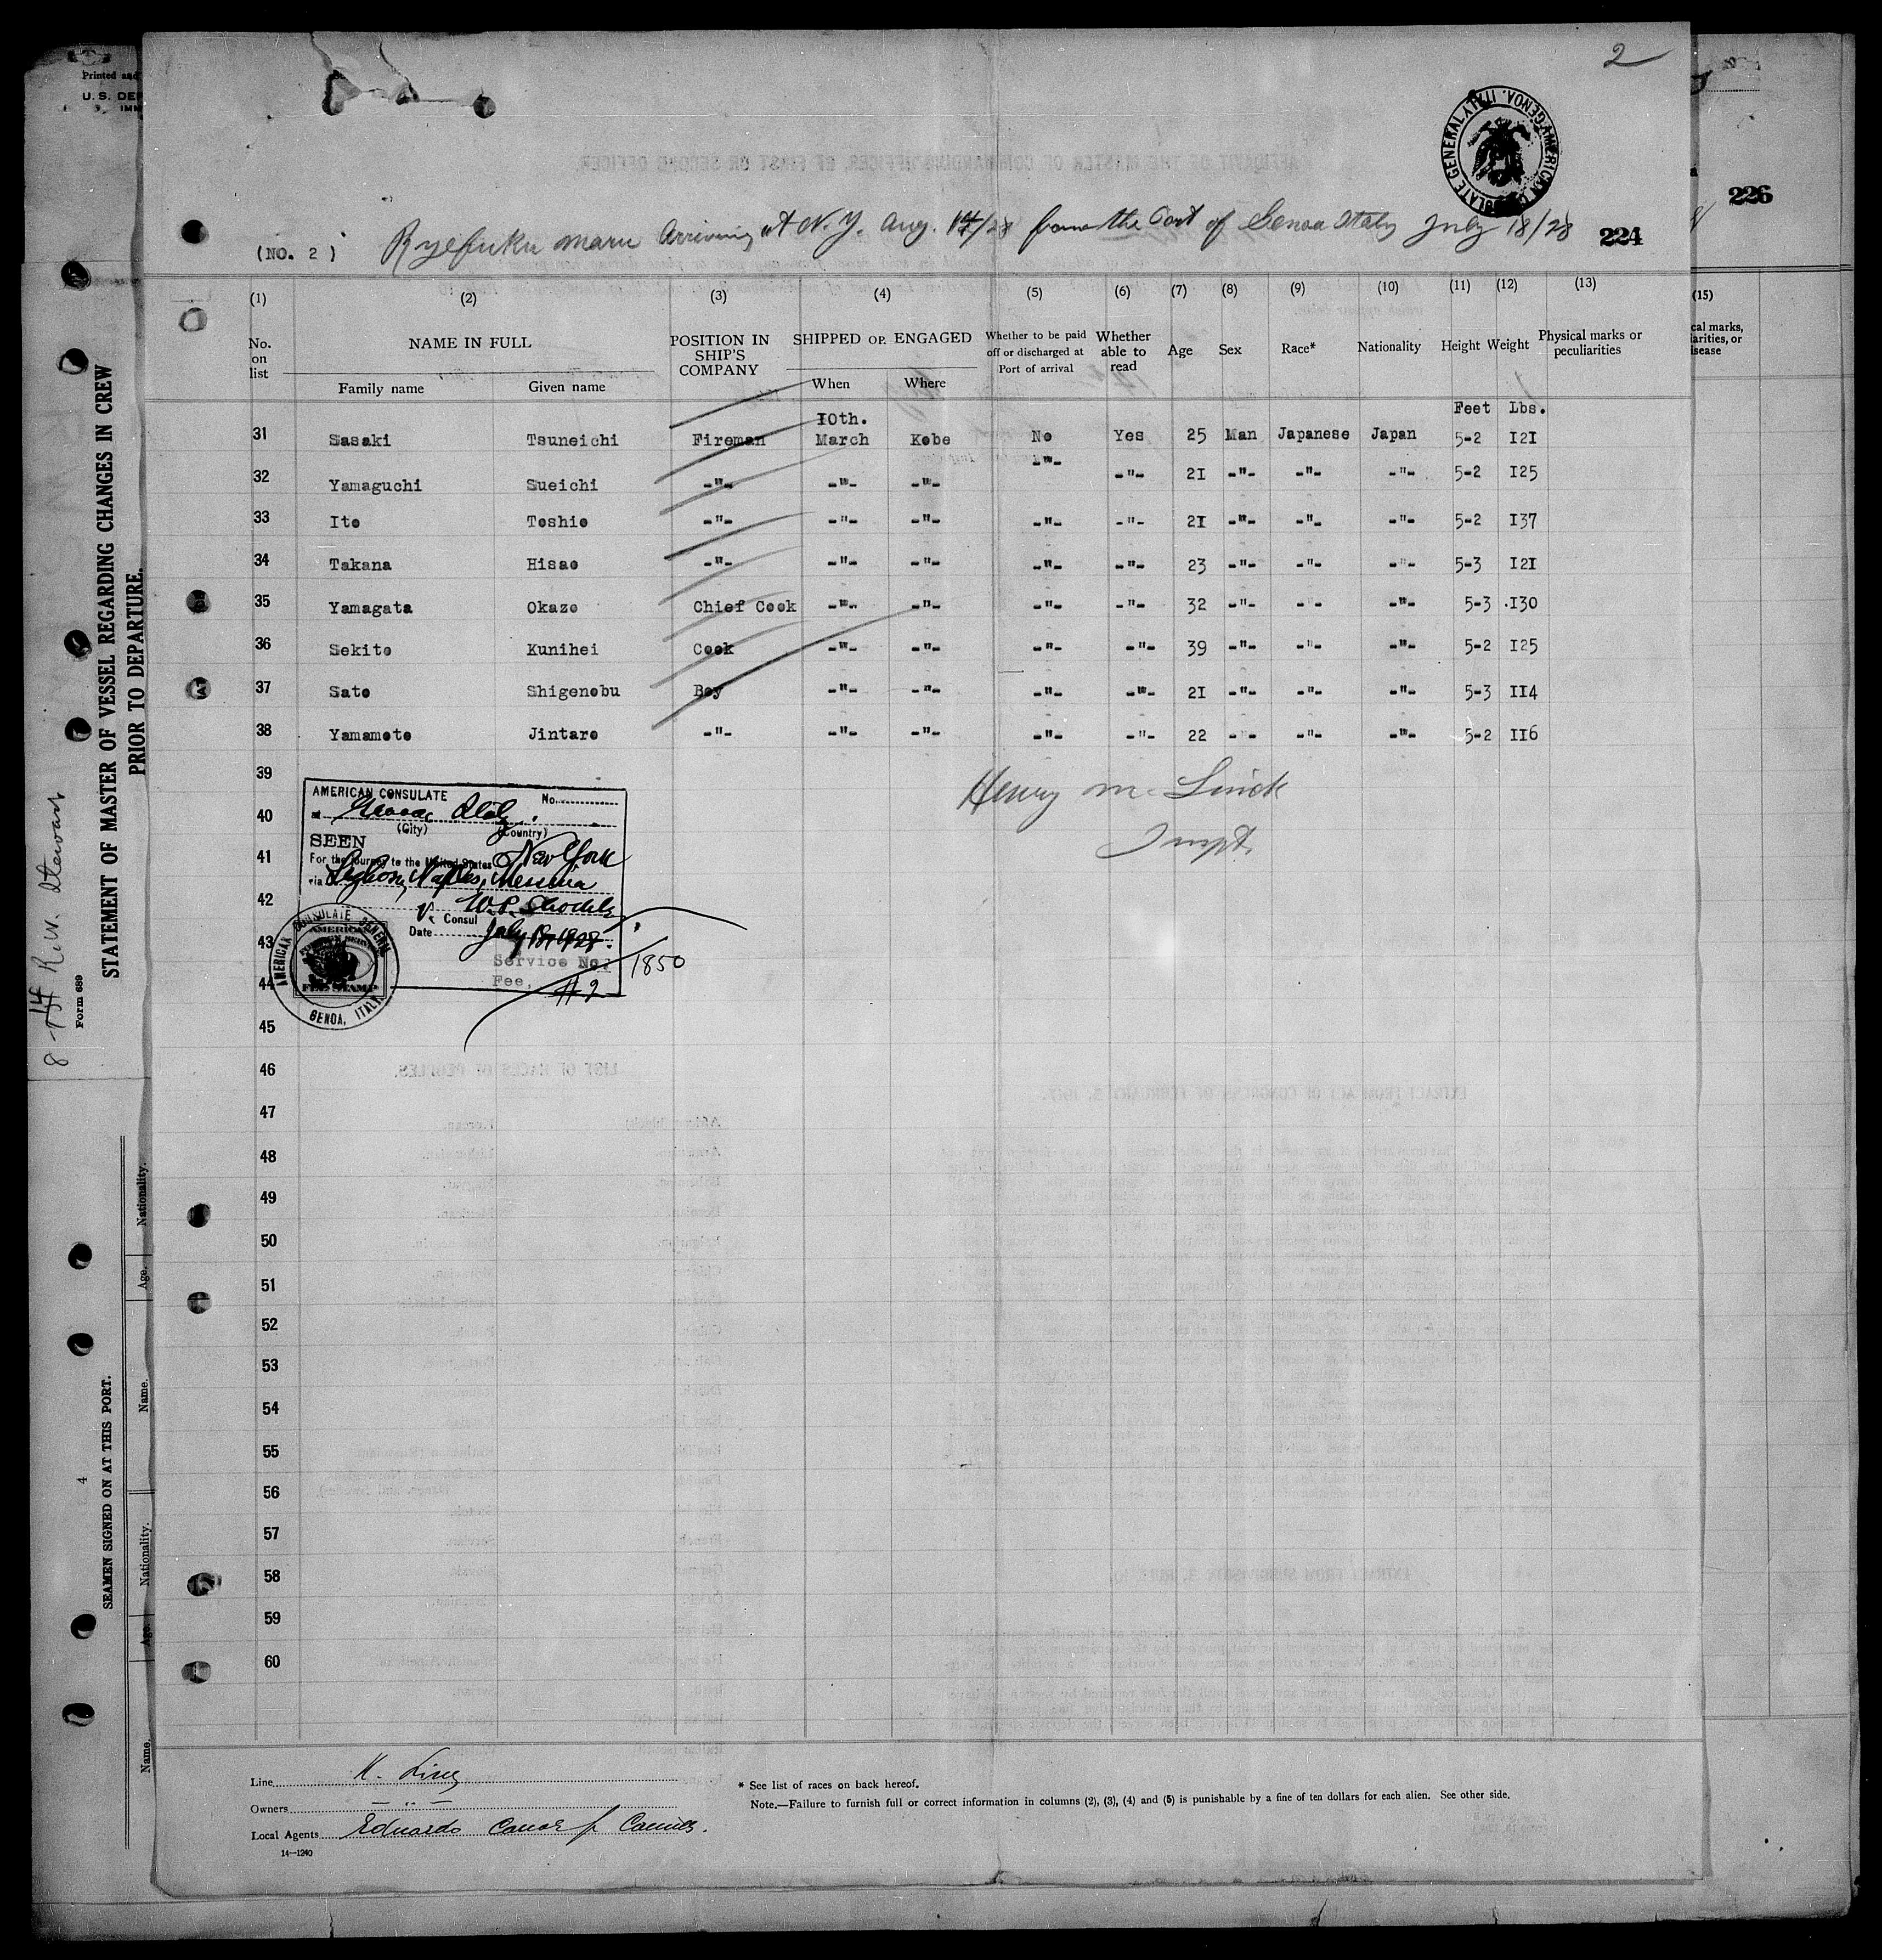 2
AMERICAN CONSULATE GENERAL GENOA, ITALY
Printed and
U. S. DE
IMM
226
(NO. 2 ) Ryefuku Maru Arriving at N.Y. Aug. 14/28 from the Port of Genoa Italy July 18/28 224
(1) (2) (3) (4) (5) (6) (7) (8) (9) (10) (11) (12) (13)
(15)
No. on list NAME IN FULL POSITION IN SHIP'S COMPANY SHIPPED OR ENGAGED Whether to be paid off or discharged at Port of arrival Whether able to read Age Sex Race* Nationality Height Weight Physical marks or peculiarities
cal marks,
arities, or
isease
Family name Given name When Where
Feet Lbs.
10th.
31 Sasaki Tsuneichi Fireman March Kobe No Yes 25 Man Japanese Japan 5-2 I2I
32 Yamaguchi Sueichi -"- -"- -"- -"- -"- 2I -"- -"- -"- 5-2 I25
33 Ito Toshio -"- -"- -"- -"- -"- 2I -"- -"- -"- 5-2 I37
34 Takana Hisao -"- -"- -"- -"- -"- 23 -"- -"- -"- 5-3 I2I
35 Yamagata Okazo Chief Cook -"- -"- -"- -"- 32 -"- -"- -"- 5-3 I30
36 Sekito Kunihei Cook -"- -"- -"- -"- 39 -"- -"- -"- 5-2 I25
37 Sato Shigenobu Boy -"- -"- -"- -"- 2I -"- -"- -"- 5-3 II4
38 Yamamoto Jintaro -"- -"- -"- -"- -"- 22 -"- -"- -"- 5-2 II6
39
40
41
42
43
44
45
46
47
48
49
50
51
52
53
54
55
56
57
58
59
60
Henry M. Linck
Inspt.
AMERICAN CONSULATE No.
at Genoa Italy.
(City) (Country)
SEEN
For the journey to the United States New York
via Leghorn, Naples, Messina
V. Consul
Date July 18, 1928.
Service No. 1850
Fee, #2
AMERICAN CONSULATE GENERAL
AMERICAN FOREIGN SERVICE
FEE STAMP
GENOA, ITALY
Line K. Line
Owners — " —
Local Agents Eduardo
14—1240
* See list of races on back hereof.
Note.—Failure to furnish full or correct information in columns (2), (3), (4) and (5) is punishable by a fine of ten dollars for each alien. See other side.
STATEMENT OF MASTER OF VESSEL REGARDING CHANGES IN CREW
PRIOR TO DEPARTURE.
Form 689
8-14 R.W. Stewart
SEAMEN SIGNED ON AT THIS PORT.
4
Name. Age. Nationality. Name. Age. Nationality.